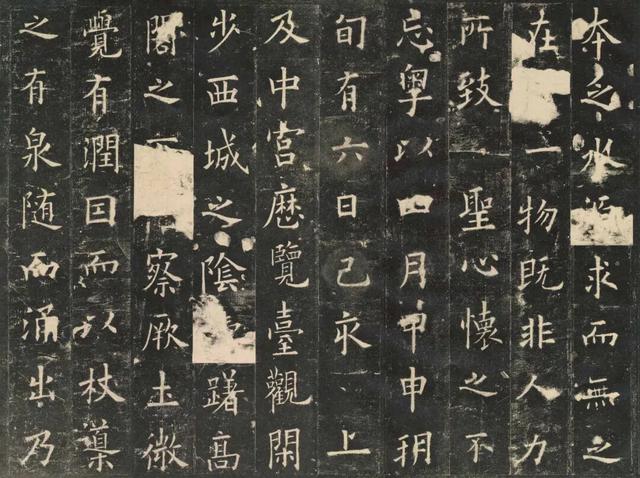 本之水泊求而無之
在一物既非人力
所致聖心懷之不
忘粤以四月甲申朔
旬有六日己亥上
及中宫歷覽臺觀閑
步西城之陰躊躇高
閣之下俯察厥土微
覺有潤因而以杖導
之有泉随而涌出乃